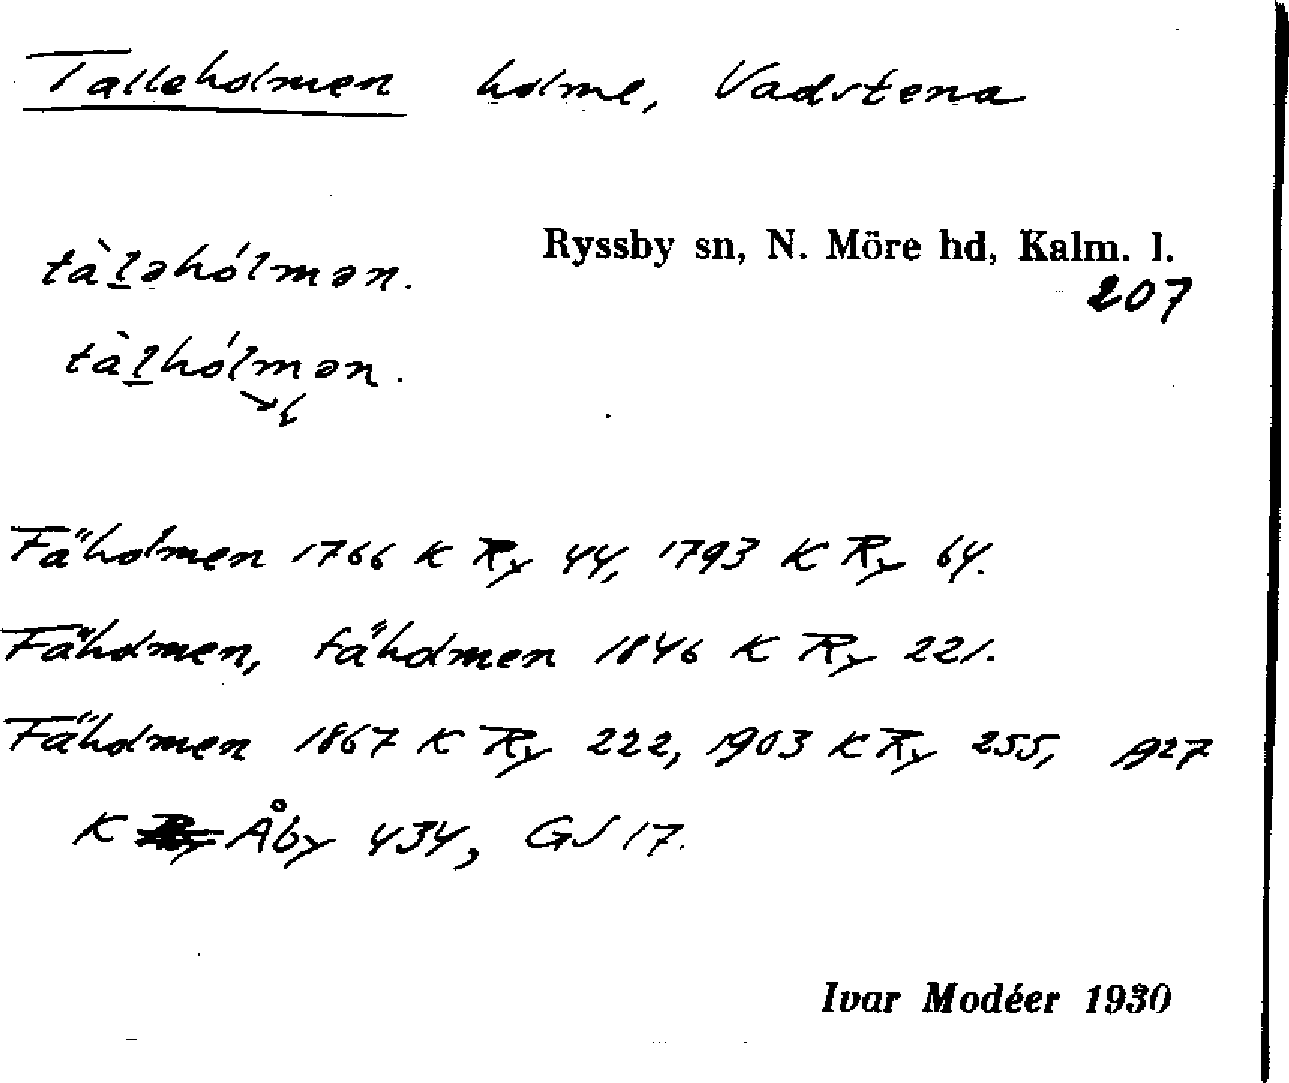 Talleholmen holme, Vadstena
Ryssby sn, N. Möre hd, Kalm. l.
tàl̲əhólmən.
207
tàl̲hólmən.
Fäholmen 1766 K Ry 44, 1793 K Ry 64.
Fäholmen, fäholmen 1846 K Ry 221.
Fäholmen 1867 K Ry 222, 1903 K Ry 255, 1927
K Åby 434, GS 17.
Ivar Modéer 1930